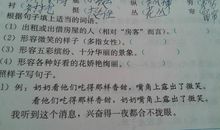 根据句子填上适当的词语。
(1) 出租或出借房屋的人(相对"房客"而言)。(
(2) 形容微笑的样子(多指女性)。(
(3) 形容五彩缤纷、十分华丽的景象。(
(4) 形容各种好看的花娇艳绚丽。(
照样子写句子。
1) 例:奶奶看他们吃得那样香甜,嘴角上露出了微笑。
看他们吃得那样香甜,奶奶嘴角上露出了微笑。
我听到这个消息,兴奋得一夜都合不拢眼。